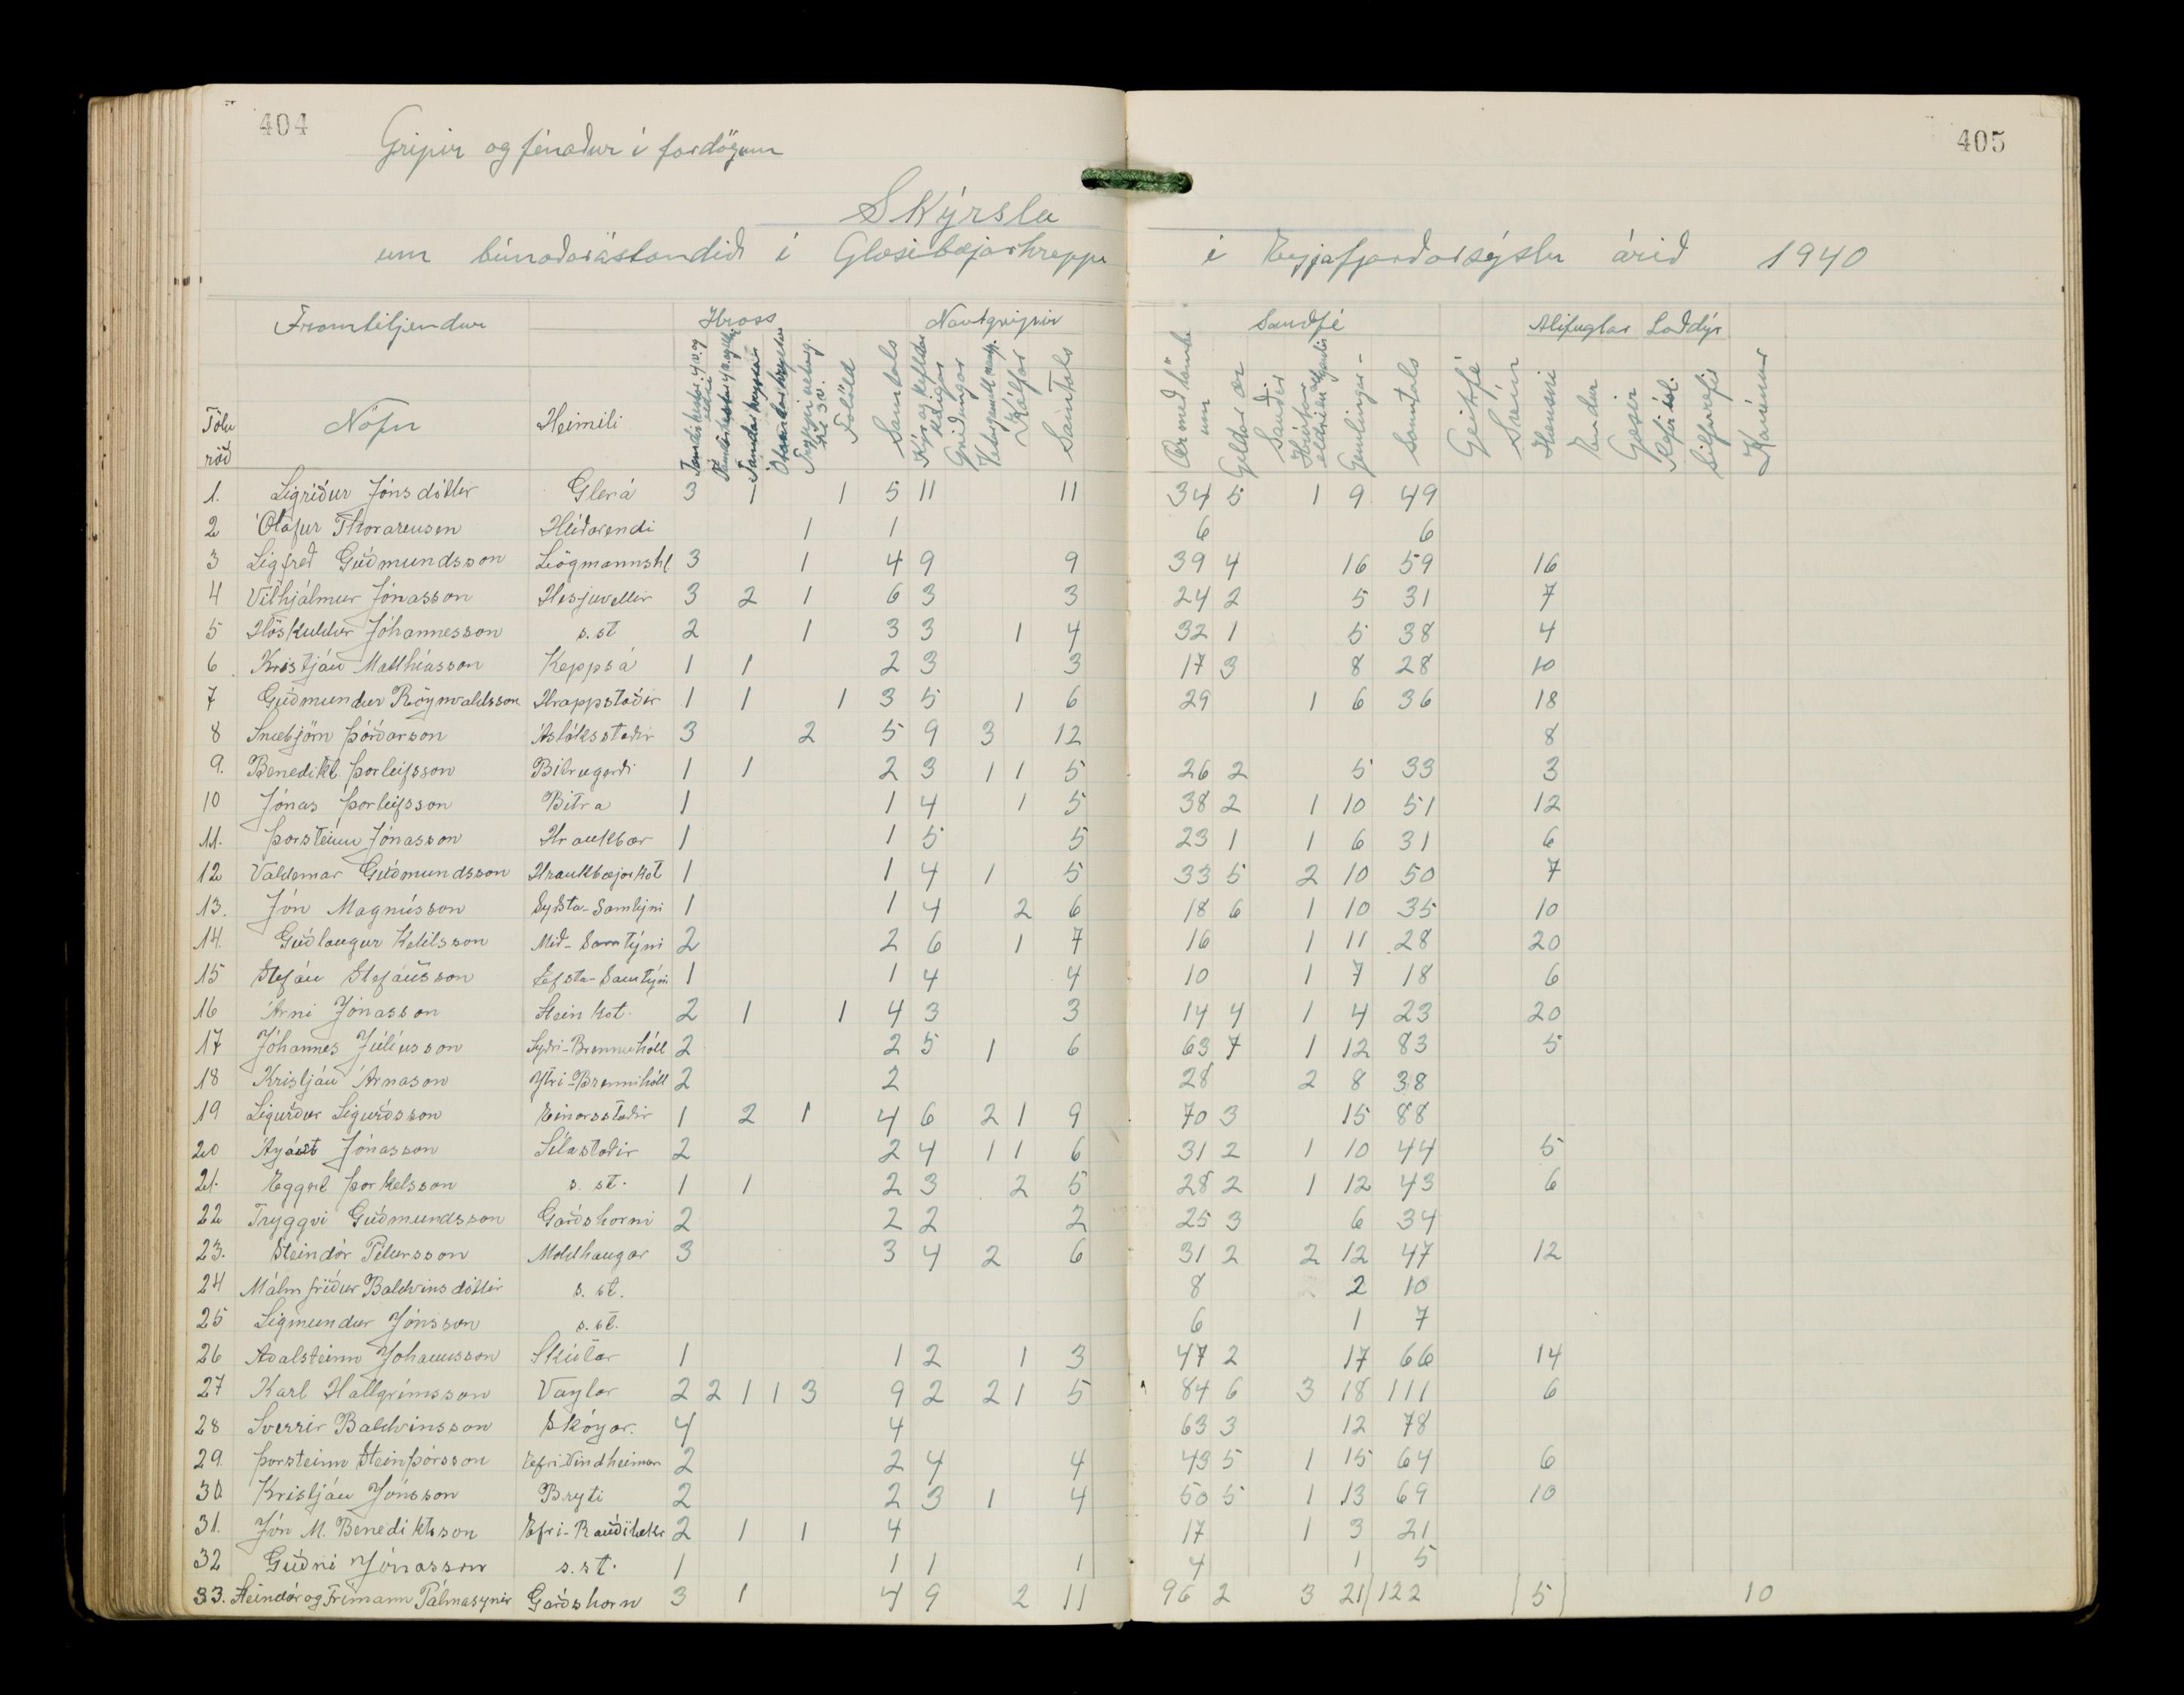 404
405
Gripir og fénaður í fardögum
Skýrsla
um búnaðarástandið í Glæsibæjarhreppi í Eyjafjarðarsýslu árið 1940
Framteljendur Hross Nautgripir Sauðfé Alifuglar Loðdýr
Tölu röð Nöfn Heimili Folöld Samtals Kýr og kefldar kvígur Griðungar Kálfar Samtals Ær með lömbum Geldar ær Sauðir Gemlingar Samtals Geitfé Svín Hænsni Endur Gæsir Refir ísl. Silfurrefir Kanínur
1. Sigríður Jónsdóttir Glerá 3 1 1 5 11 11 34 5 1 9 49
2 Ólafur Thorarensen Hlíðarendi 1 1 6 6
3 Sigfreð Guðmundsson Lögmannshl 3 1 4 9 9 39 4 16 59 16
4 Vilhjálmur Jónasson Hesjuvellir 3 2 1 6 3 3 24 2 5 31 7
5 Höskuldur Jóhannesson s. st 2 1 3 3 1 4 32 1 5 38 4
6 Kristján Matthíasson Keppsá 1 1 2 3 3 17 3 8 28 10
7 Guðmundur Rögnvaldsson Hrappstaðir 1 1 1 3 5 1 6 29 1 6 36 18
8 Snæbjörn Þórðarson Ásláksstaðir 3 2 5 9 3 12 8
9. Benedikt Þorleifsson Bitrugerði 1 1 2 3 1 1 5 26 2 5 33 3
10 Jónas Þorleifsson Bitra 1 1 4 1 5 38 2 1 10 51 12
11. Þorsteinn Jónasson Hraukbær 1 1 5 5 23 1 1 6 31 6
12 Valdemar Guðmundsson Hraukbæjarkot 1 1 4 1 5 33 5 2 10 50 7
13. Jón Magnússon Syðsta-Samtýni 1 1 4 2 6 18 6 1 10 35 10
14. Guðlaugur Ketilsson Mið-Samtýni 2 2 6 1 7 16 1 11 28 20
15 Stefán Stefánsson Efsta-Samtýni 1 1 4 4 10 1 7 18 6
16 Árni Jónasson Steinkot 2 1 1 4 3 3 14 4 1 4 23 20
17 Jóhannes Júlíusson Syðri-Brennihóll 2 2 5 1 6 63 7 1 12 83 5
18 Kristján Árnason Ytri-Brennihóll 2 2 28 2 8 38
19 Sigurður Sigurðsson Einarsstaðir 1 2 1 4 6 2 1 9 70 3 15 88
20 Ágúst Jónasson Sílastaðir 2 2 4 1 1 6 31 2 1 10 44 5
21. Eggert Þorkelsson s. st. 1 1 2 3 2 5 28 2 1 12 43 6
22 Tryggvi Guðmundsson Garðshorni 2 2 2 2 25 3 6 34
23. Steindór Pétursson Moldhaugar 3 3 4 2 6 31 2 2 12 47 12
24 Málmfríður Baldvinsdóttir s. st. 8 2 10
25 Sigmundur Jónsson s. st. 6 1 7
26 Aðalsteinn Jóhannsson Skútar 1 1 2 1 3 47 2 17 66 14
27 Karl Hallgrímsson Vaglar 2 2 1 1 3 9 2 2 1 5 84 6 3 18 111 6
28 Sverrir Baldvinsson Skógar. 4 4 63 3 12 78
29. Þorsteinn Steinþórsson Efri Vindheimar 2 2 4 4 43 5 1 15 64 6
30. Kristján Jónsson Bryti 2 2 3 1 4 50 5 1 13 69 10
31. Jón M. Benediktsson Efri-Rauðilækr 2 1 1 4 17 1 3 21
32 Guðni Jónasson s. st. 1 1 1 1 4 1 5
33. Steindór og Frímann Pálmasynir Garðshorn 3 1 4 9 2 11 96 2 3 21 122 5 10